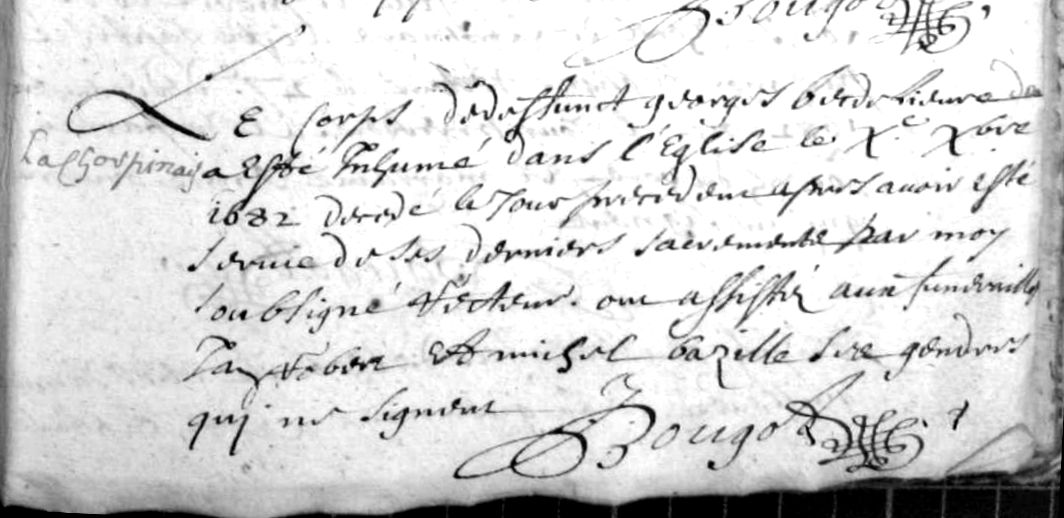 Bougot
LE corps dedeffunct georges berdelieure de
La Chospinais
a Esté Inhumé dans l'Eglise le Xe Xbre
1682 decedé le Jour precedent apres auoir esté
seruie de ses derniers sacrements par moy
soubsigné Recteur. ont assisté aux funerailles
Jan Robert Et michel bazille ses gendres
qui ne signent
Bougot